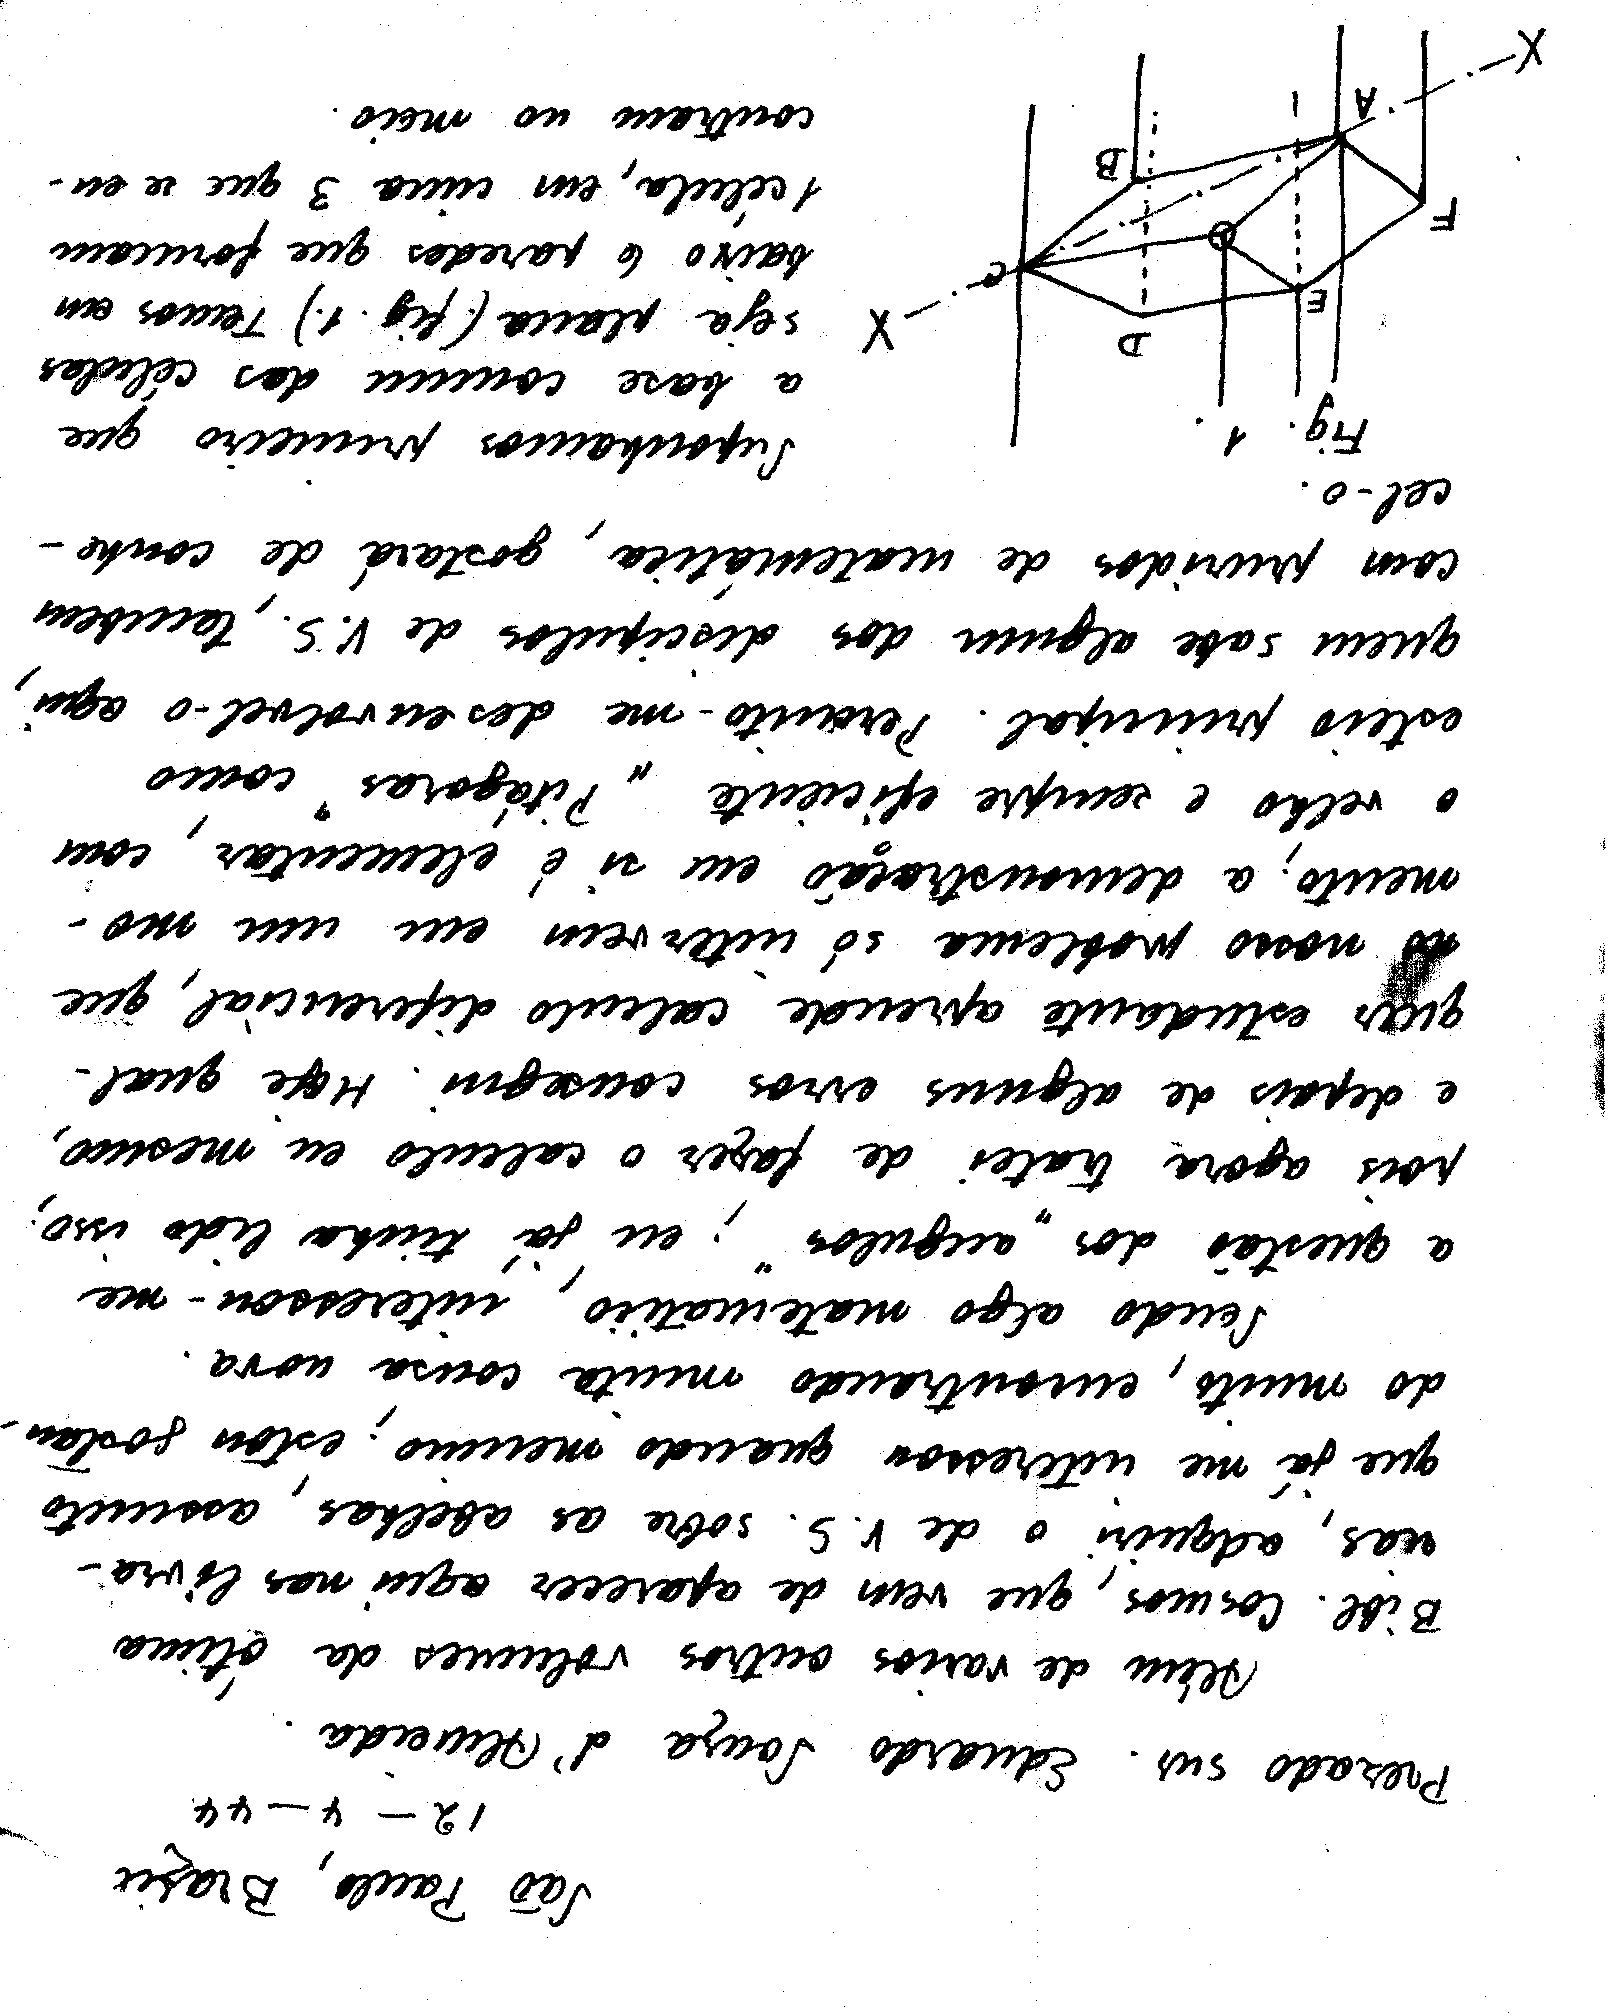 São Paulo, Brasil
12 - 4 - 44
Prezado snr. Eduardo Souza d'Almeida.
Além de varios outros volumes da ótima
Bibl. Cosmos, que vem de aparecer aqui nas livra-
rias, adquiri o de V.S. sobre as abelhas, assunto
que já me interessou quando menino; estou gostan-
do muito, encontrando muita cousa nova.
Sendo algo matematico, interessou-me
a questão dos „angulos“; eu já tinha lido isso;
pois agora tratei de fazer o calculo eu mesmo,
e depois de alguns erros consegui. Hoje qual-
quer estudante aprende calculo diferencial, que
no nosso problema só intervem em um mo-
mento; a demonstração em si é elementar, com
o velho e sempre eficiente „Pitágoras“ como
esteio principal. Permito-me desenvolvel-o aqui,
quem sabe algum dos discipulos de V.S., tambem
com pruridos de matemática, gostará de conhe-
cel-o.
Fig. 1.
Suponhamos primeiro que
a base comum das células
seja plana (fig. 1.) Temos em
baixo 6 paredes que formam
1 célula, em cima 3 que se en-
contram no meio.
X
D
E
C
F
B
A
X